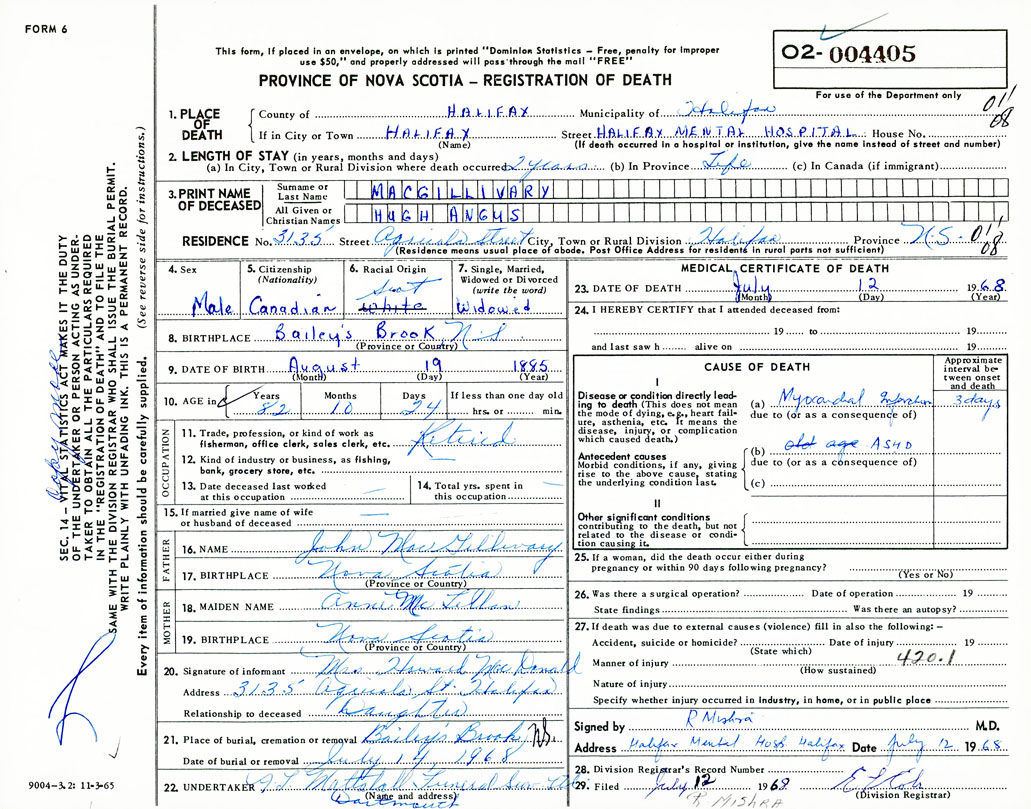 FORM 6
This form, if placed in an envelope, on which is printed "Dominion Statistics – Free, penalty for improper
use $50," and properly addressed will pass through the mail "FREE"
PROVINCE OF NOVA SCOTIA – REGISTRATION OF DEATH
O2- 004405
For use of the Department only
011
08
1. PLACE OF DEATH
County of HALIFAX Municipality of Halifax
If in City or Town HALIFAX Street HALIFAX MENTAL HOSPITAL House No.
(Name) (If death occurred in a hospital or institution, give the name instead of street and number)
2. LENGTH OF STAY (in years, months and days)
(a) In City, Town or Rural Division where death occurred 2 years (b) In Province Life (c) In Canada (if immigrant)
3. PRINT NAME OF DECEASED
Surname or Last Name MACGILLIVARY
All Given or Christian Names HUGH ANGUS
RESIDENCE No. 3135 Street Agricola Street City, Town or Rural Division Halifax Province N.S. 011
08
(Residence means usual place of abode. Post Office Address for residents in rural parts not sufficient)
4. Sex Male
5. Citizenship (Nationality) Canadian
6. Racial Origin Scot White
7. Single, Married, Widowed or Divorced (write the word) Widowed
8. BIRTHPLACE Bailey's Brook N.S
(Province or Country)
9. DATE OF BIRTH August 19 1885
(Month) (Day) (Year)
10. AGE in Years Months Days If less than one day old
82 10 24 hrs. or min.
OCCUPATION
11. Trade, profession, or kind of work as
fisherman, office clerk, sales clerk, etc. Retired
12. Kind of industry or business, as fishing,
bank, grocery store, etc.
13. Date deceased last worked
at this occupation —
14. Total yrs. spent in
this occupation —
15. If married give name of wife
or husband of deceased —
FATHER
16. NAME John MacGillivary
17. BIRTHPLACE Nova Scotia
(Province or Country)
MOTHER
18. MAIDEN NAME Annie McLellan
19. BIRTHPLACE Nova Scotia
(Province or Country)
20. Signature of informant Mrs Howard MacDonald
Address 3135 Agricola St. Halifax
Relationship to deceased Daughter
21. Place of burial, cremation or removal Bailey's Brook NS.
Date of burial or removal July 14 1968
22. UNDERTAKER Mattatall Funeral
(Name and address) Dartmouth
MEDICAL CERTIFICATE OF DEATH
23. DATE OF DEATH July 12 1968
(Month) (Day) (Year)
24. I HEREBY CERTIFY that I attended deceased from:
19 to 19
and last saw h alive on 19
CAUSE OF DEATH
Approximate interval between onset and death
I
Disease or condition directly leading to death (This does not mean the mode of dying, e.g., heart failure, asthenia, etc. It means the disease, injury, or complication which caused death.)
(a) Myocardial Infarction 3 days
due to (or as a consequence of)
Antecedent causes
Morbid conditions, if any, giving rise to the above cause, stating the underlying condition last.
(b) old age ASHD
due to (or as a consequence of)
(c)
II
Other significant conditions
contributing to the death, but not related to the disease or condition causing it.
25. If a woman, did the death occur either during
pregnancy or within 90 days following pregnancy?
(Yes or No)
26. Was there a surgical operation? Date of operation 19
State findings Was there an autopsy?
27. If death was due to external causes (violence) fill in also the following: –
Accident, suicide or homicide? Date of injury 19
(State which)
Manner of injury 420.1
(How sustained)
Nature of injury
Specify whether injury occurred in industry, in home, or in public place
Signed by R Mishra M.D.
Address Halifax Mental Hosp Halifax Date July 12 1968
28. Division Registrar's Record Number
29. Filed July 12 1968
(Division Registrar)
R MISHRA
SEC. 14 – VITAL STATISTICS ACT MAKES IT THE DUTY
OF THE UNDERTAKER OR PERSON ACTING AS UNDER-
TAKER TO OBTAIN ALL THE PARTICULARS REQUIRED
IN THE "REGISTRATION OF DEATH" AND TO FILE THE
SAME WITH THE DIVISION REGISTRAR WHO SHALL ISSUE THE BURIAL PERMIT.
WRITE PLAINLY WITH UNFADING INK. THIS IS A PERMANENT RECORD.
Every item of information should be carefully supplied. (See reverse side for instructions.)
9004-3.2: 11-3-65